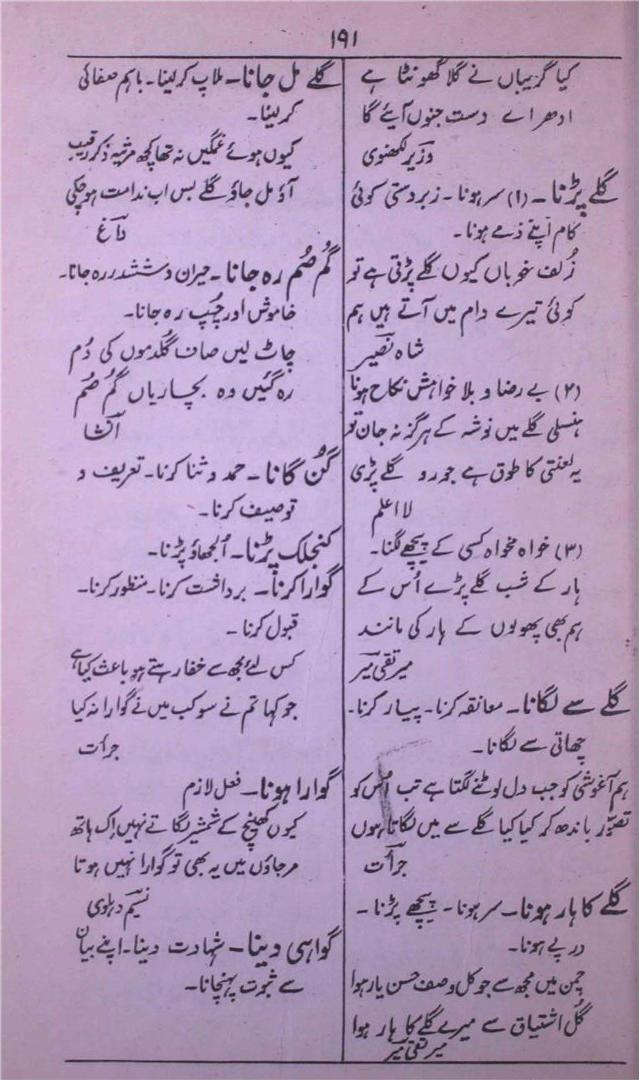 ۱۹۱
کیا گریباں نے گلا گھونٹا ہے
ادھر اے دست جنوں آیئے گا
وزیر لکھنوی
گلے پڑنا۔ (۱) سر ہونا۔ زبردستی کوئی
کام اپنے ذمے ہونا۔
زُلف خوباں کیوں گلے پڑتی ہے تو
کوئی تیرے دام میں آتے ہیں ہم
شاہ نصیر
(۲) بے رضا و بلا خواہش نکاح ہونا
ہنسلی گلے میں نوشہ کے ہرگز نہ جان تو
یہ لعنتی کا طوق ہے جورو گلے پڑی
لا اعلم
(۳) خواہ مخواہ کسی کے پیچھے لگنا۔
ہار کے شب گلے پڑے اُس کے
ہم بھی پھولوں کے ہار کی مانند
میر تقی میر
گلے سے لگانا۔ معانقہ کرنا۔ پیار کرنا۔
چھاتی سے لگانا۔
ہم آغوشی کو جب دل لوٹنے لگتا ہے تب اُس کو
تصوّر باندھ کر کیا کیا گلے سے میں لگاتا ہوں
جرأت
گلے کا ہار ہونا۔ سر ہونا۔ پیچھے پڑنا۔
درپے ہونا۔
چمن میں مجھ سے جو کل وصف حسن یار ہوا
گُل اشتیاق سے میرے گلے کا ہار ہوا
میر تقی میر
گلے مل جانا۔ ملاپ کر لینا۔ باہم صفائی
کر لینا۔
کیوں ہوئے غمگیں نہ تھا کچھ مرثیہ ذکر رقیب
آؤ مل جاؤ گلے بس اب ندامت ہو چکی
داغ
گُم صُم رہ جانا۔ حیران و ششدر رہ جانا۔
خاموش اور چُپ رہ جانا۔
چاٹ لیں صاف گلدموں کی دُم
رہ گئیں وہ بچاریاں گُم صُم
انشا
گُن گانا۔ حمد و ثنا کرنا۔ تعریف و
توصیف کرنا۔
گنجلک پڑنا۔ اُلجھاؤ پڑنا۔
گوارا کرنا۔ برداشت کرنا۔ منظور کرنا۔
قبول کرنا۔
کس لئے مجھ سے خفا رہتے ہو باعث کیا ہے
جو کہا تم نے سو کب میں نے گوارا نہ کیا
جرأت
گوارا ہونا۔ فعل لازم
کیوں کھینچ کے شمشیر لگاتے نہیں اِک ہاتھ
مرجاؤں میں یہ بھی تو گوارا نہیں ہوتا
نسیم دہلوی
گواہی دینا۔ شہادت دینا۔ اپنے بیان
سے ثبوت پہنچانا۔